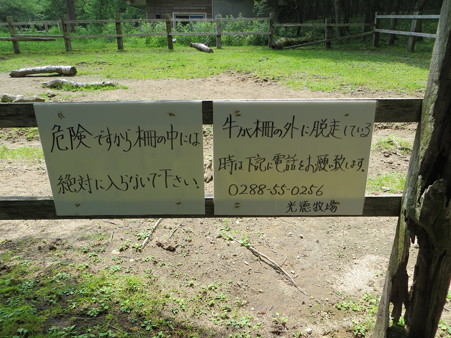 危険ですから柵の中には
絶対に入らないで下さい。
牛が柵の外に脱走している
時は下記に電話をお願い致します。
0288-55-0256
光徳牧場